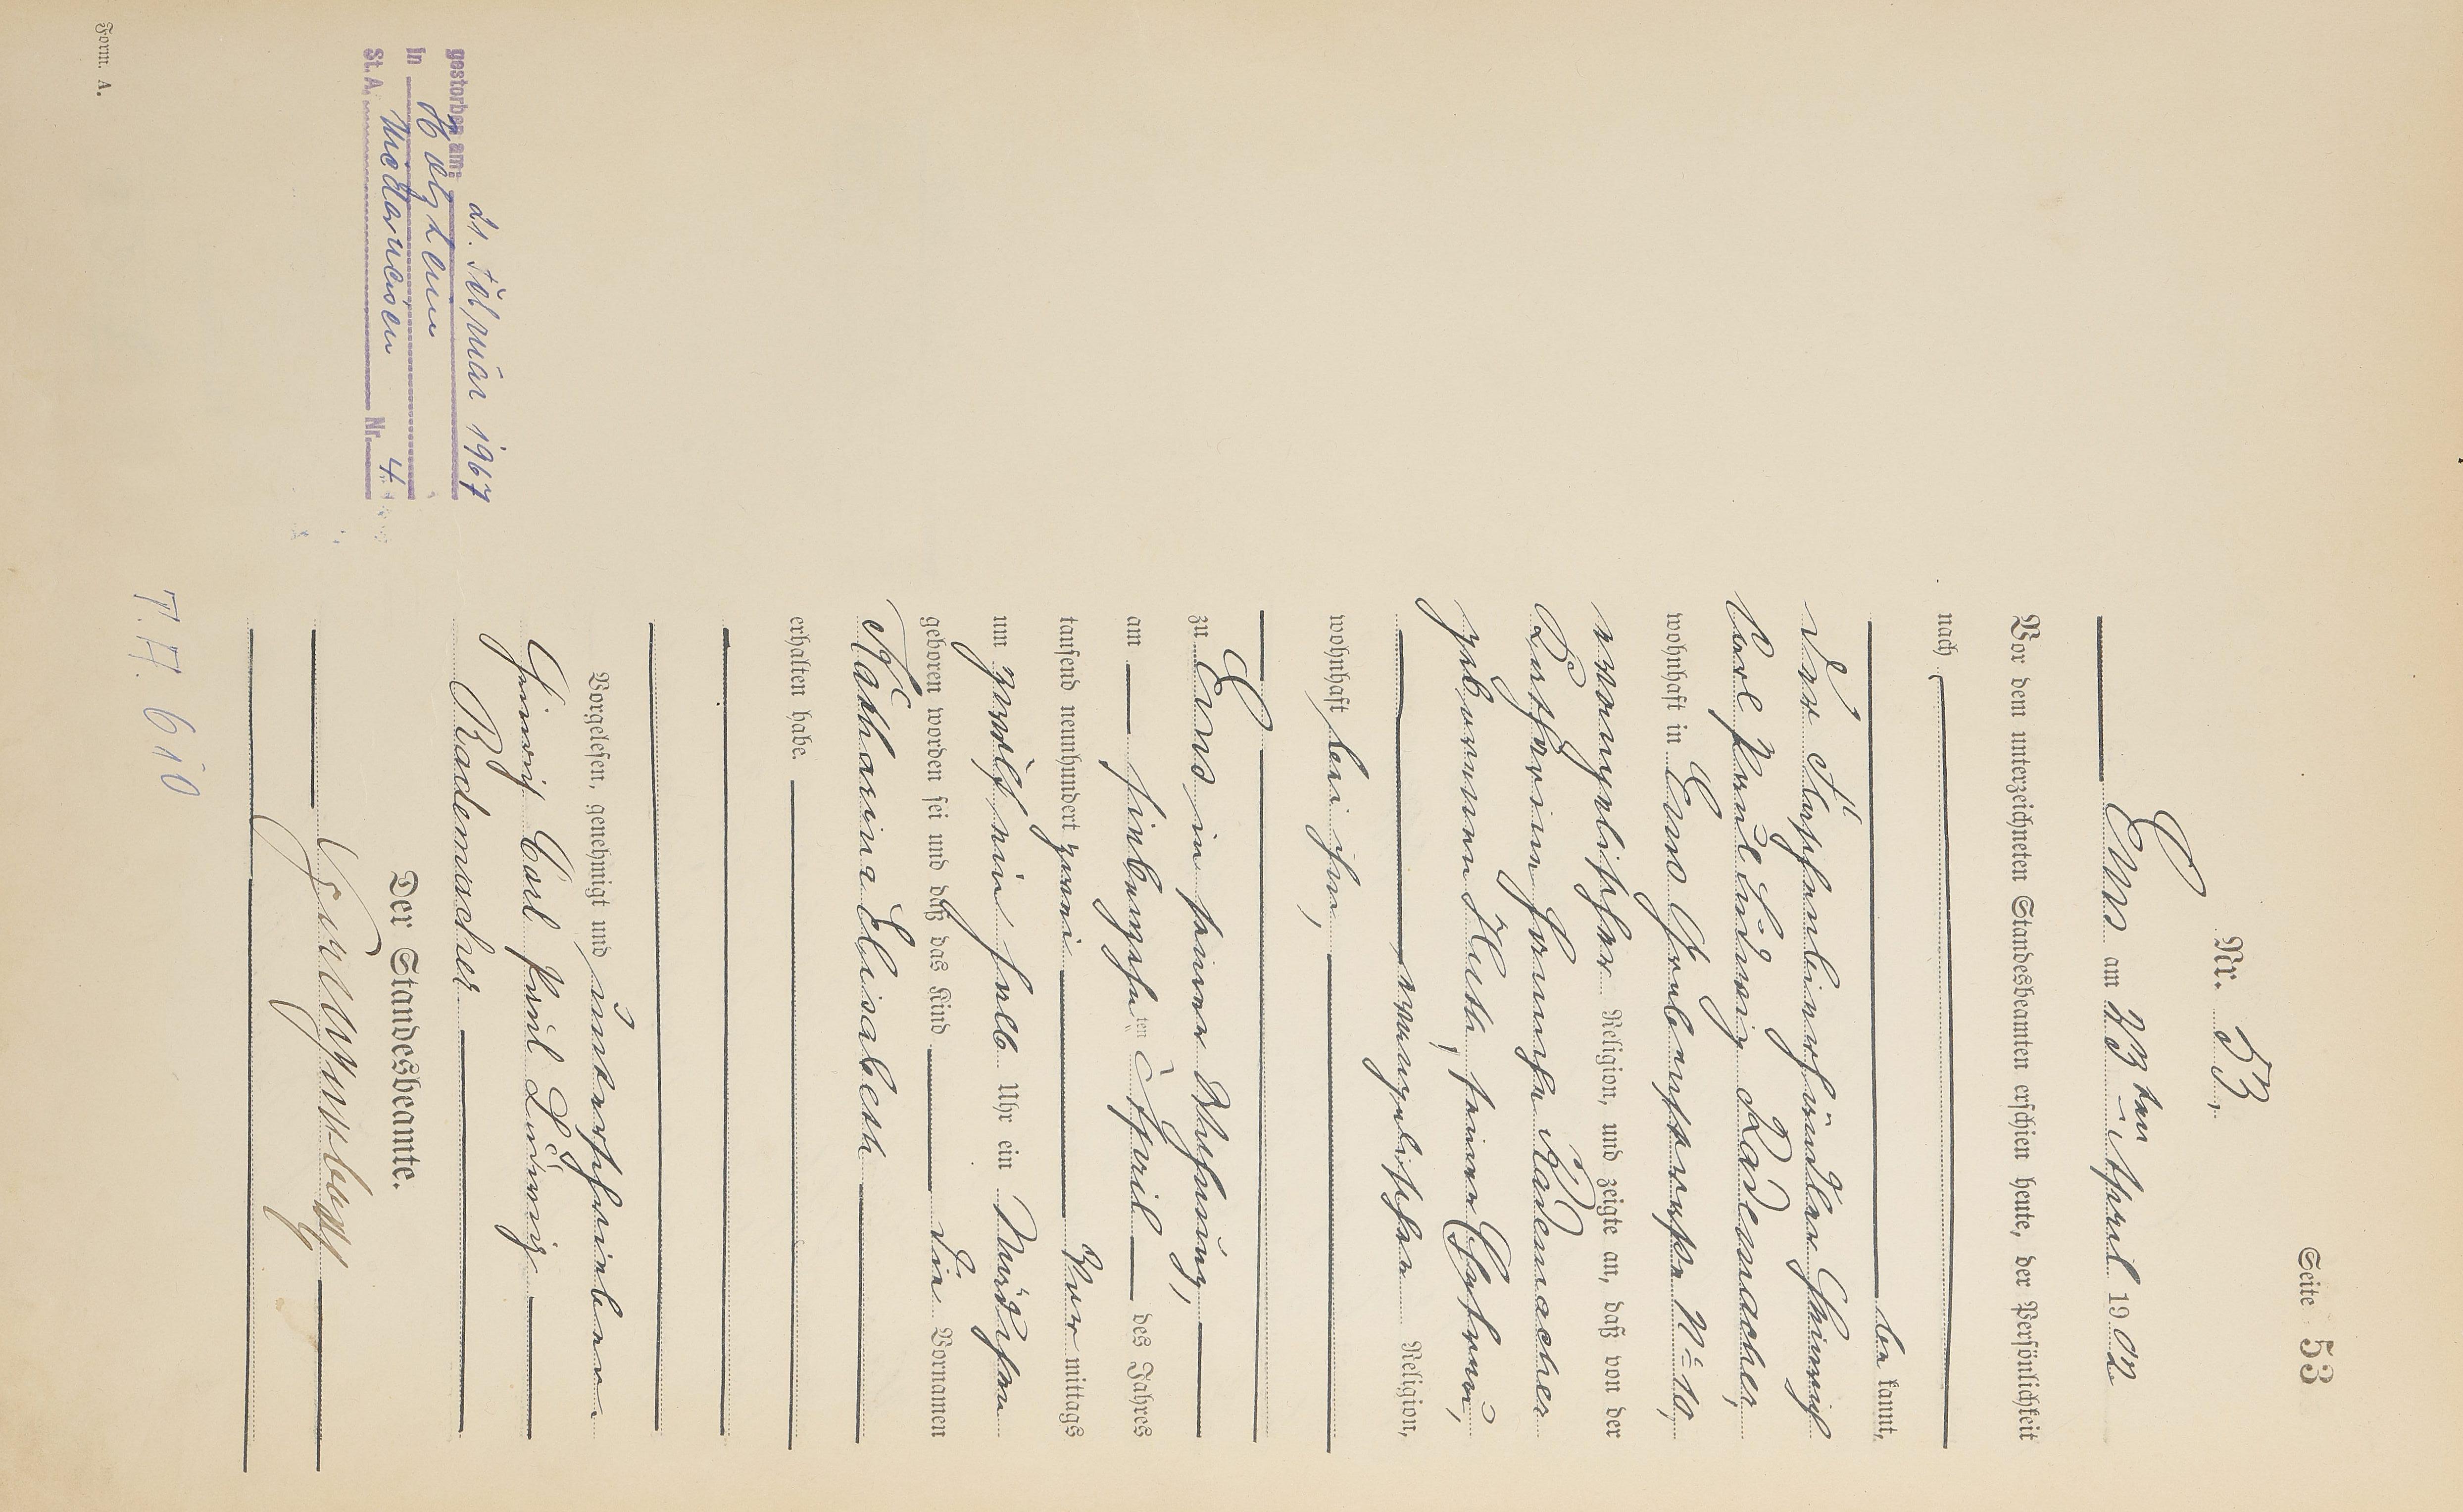 Seite 53
Nr. 53.
Ems am 23ten April 1902
Vor dem unterzeichneten Standesbeamten erschien heute, der Persönlichkeit
nach
be kannt,
der Flaschenbierhändler Heinrich
Carl Paul Ludwig Rademacher,
wohnhaft in Ems Grabenstraße No 10,
evangelischer Religion, und zeigte an, daß von der
Rademacher
geborenen seiner Ehefrau,
evangelischer Religion,
wohnhaft bei ihm,
zu Ems in seiner Wohnung,
am siebenzehnten April des Jahres
tausend neunhundert zwei Vor mittags
um zwölf ein halb Uhr ein Mädchen
geboren worden sei und daß das Kind die Vornamen
Katharina Elisabeth
erhalten habe.
Vorgelesen, genehmigt und unterschrieben
Heinrich Carl Paul Ludwig
Rademacher
Der Standesbeamte.
gestorben am: 21. Februar 1967
in Holzheim
St. A. Nr. 4
T. H. 610
Form. A.